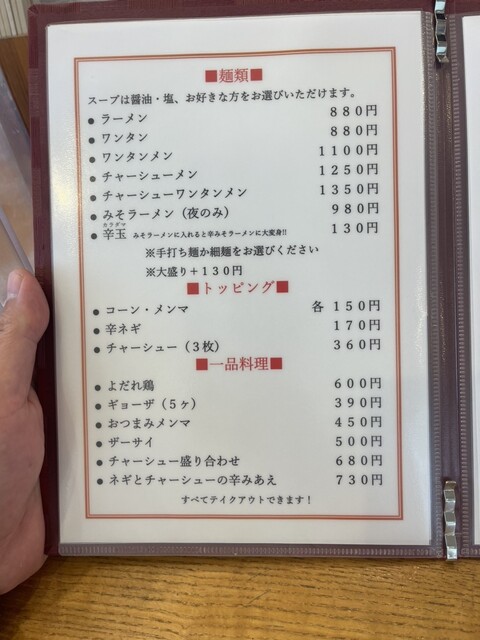 ■麺類■
スープは醤油・塩、お好きな方をお選びいただけます。
● ラーメン 880円
● ワンタン 880円
● ワンタンメン 1100円
● チャーシューメン 1250円
● チャーシューワンタンメン 1350円
● みそラーメン（夜のみ） 980円
カラダマ
● 辛玉 みそラーメンに入れると辛みそラーメンに大変身!! 130円
※手打ち麺か細麺をお選びください
※大盛り＋130円
■トッピング■
● コーン・メンマ 各 150円
● 辛ネギ 170円
● チャーシュー（3枚） 360円
■一品料理■
● よだれ鶏 600円
● ギョーザ（5ヶ） 390円
● おつまみメンマ 450円
● ザーサイ 500円
● チャーシュー盛り合わせ 680円
● ネギとチャーシューの辛みあえ 730円
すべてテイクアウトできます！